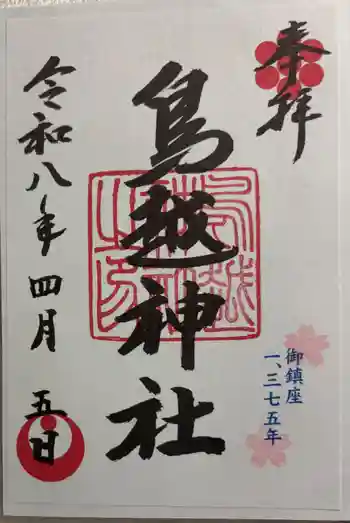 奉拝
鳥越神社
御鎮座
一、三七五年
令和八年四月五日